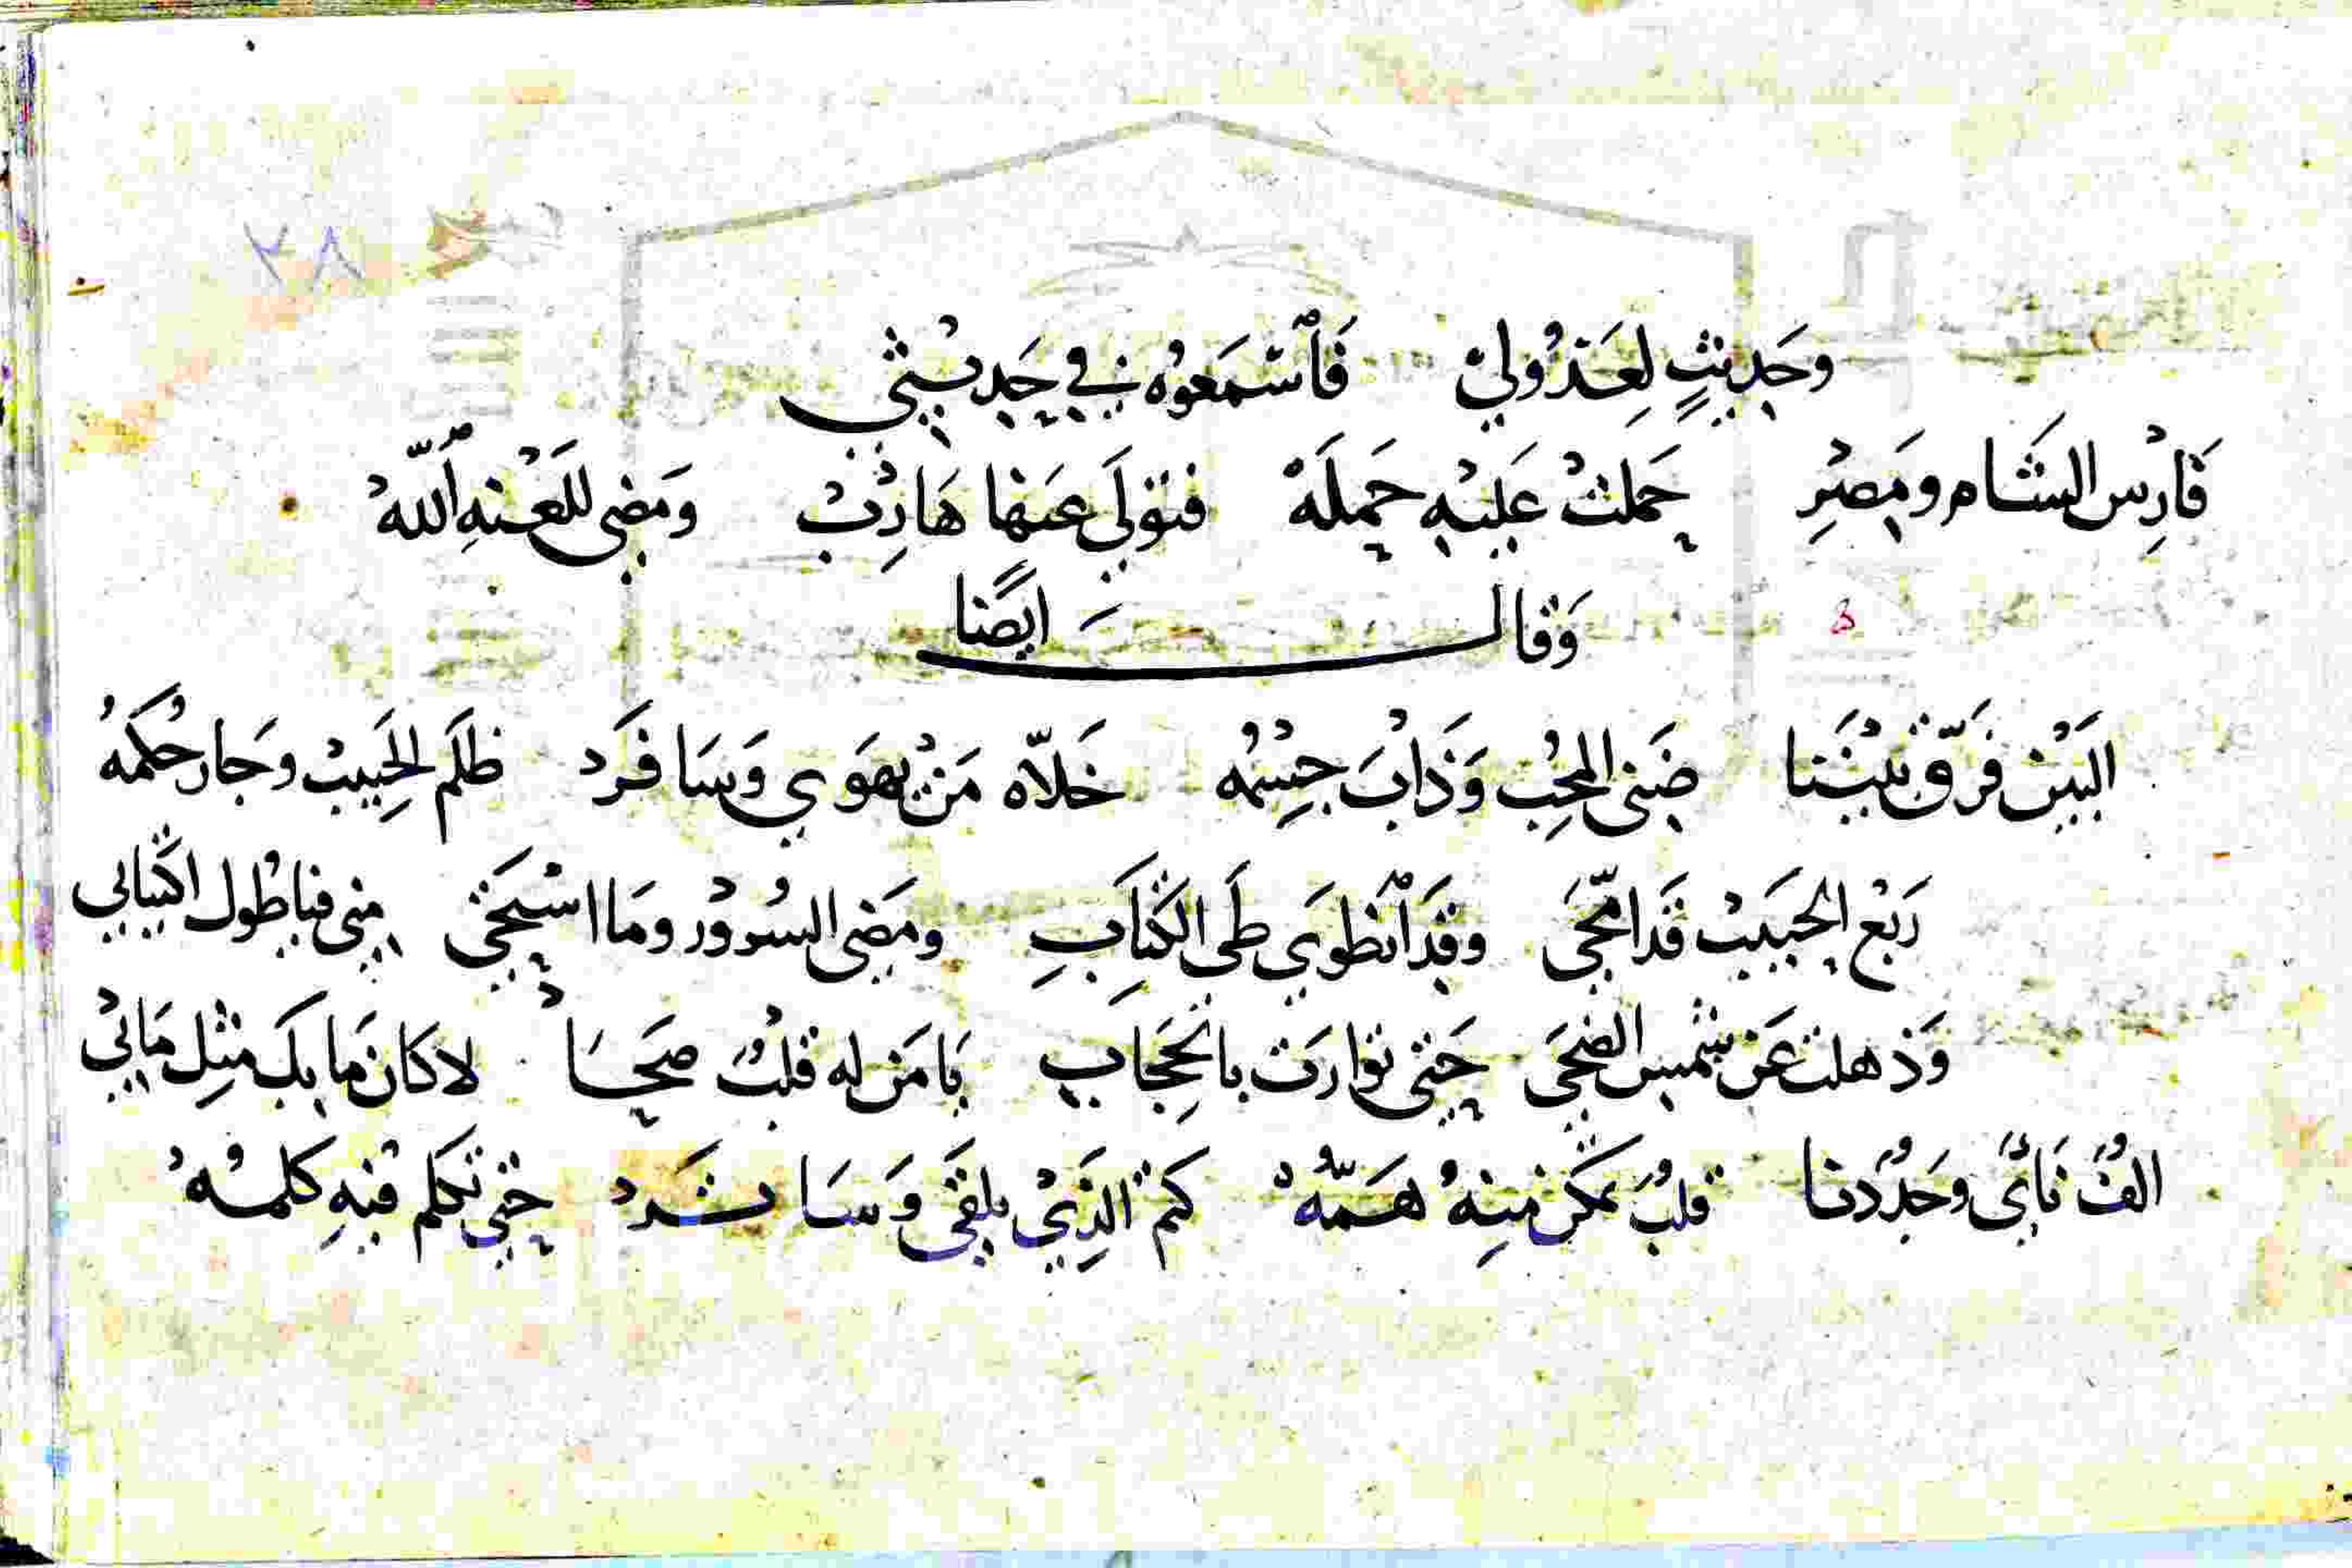 ٢٨
وحَدِيثٍ لِعَذُولِيْ فَاسْمَعُوْه فِي حَدِيْثِي
فَارِسْ الشَام ومَصْرِ حَملتْ عَليْه حَملَهْ فتوَلَى عَنها هَارِبْ وَمَضى للَعْنِهِ اللّهْ
وَقال ايضًا
البَيْن فَرَّقْ بَيْنَنا ضَنى المحِبْ وَذَابْ جِسْمُه خَلاّه مَنْ يهَوى وَسَافَرَد ظلَم الحَبيبْ وجَار حُكمَهُ
رَبْع الحبَيبْ قَد امّحَى وقَد انطوَى طَى الكتَابِ ومَضى السُرُوْر ومَا اسْتحَى مِنى فيا طُول اكتيابي
وَذهلت عَن شمس الضحَى حَتى توارَت بالحِجَابِ يَا مَن له قلبْ صَحَا لا كَان مَا بِكَ مثِل مَابيْ
الفْ نَاىْ وحَدُدنا قلبْ تمكن مِنهُ هَمّهْ كمْ الذِيْ يلقَى وَسَا شَرَدْ حَتى تكَلم فيْهِ كلمهْ